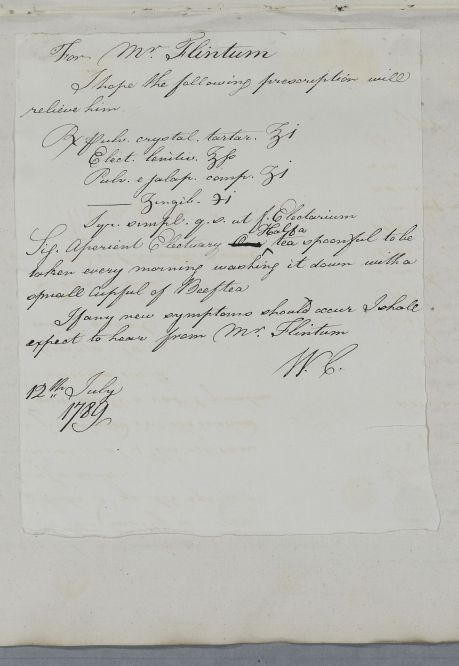 For Mr. Flintum
I hope the following prescription will
relieve him.
℞ Pulv. crystal. tartar. ℥j
Elect. lenitiv. ℥ſs
Pulv. e jalap. comp. ℥j
—— Zingib. ʒj
Syr. simpl. q. s. ut f. Electarium
Sig. Aperient Electuary Half a tea spoonful to be
taken every morning washing it down with a
small cupful of Beeftea
If any new symptoms should occur I shall
expect to hear from Mr. Flintum
W. C.
12th July
1789